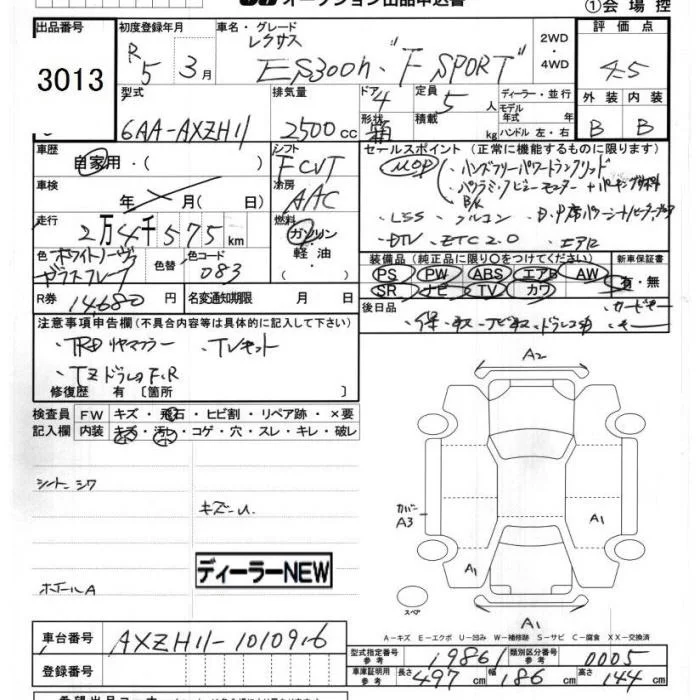 オークション出品申込書
①会場控
出品番号 3013
初度登録年月 R5 3月
車名・グレード レクサス ES300h "F SPORT"
2WD・4WD
評価点 4.5
型式 6AA-AXZH11
排気量 2500cc
ドア 4
形状 箱
定員 5人
積載 kg
ディーラー・並行
モデル年式 年式
ハンドル 左・右
外装 B
内装 B
車歴 自家用・( )
シフト FCVT
セールスポイント (正常に機能するものに限ります)
MOP ・ハンズフリーパワートランクリッド
・パノラミックビューモニター
・LSS
・DTV ・ETC2.0 ・エアロ
車検 年 月( 日)
冷房 AAC
走行 2万4千575km
燃料 ガソリン・軽油・( )
色 ホワイトノーヴァガラスフレーク
色替
色コード 083
装備品 (純正品に限り○をつけてください)
PS PW ABS エアB AW
SR ナビ TV カワ
新車保証書 有・無
R券 14,680円
名変通知期限 月 日
後日品
注意事項申告欄 (不具合内容等は具体的に記入して下さい)
・TRDリヤマフラー ・TVキット
・TZドラレコF.R
修復歴 有 [箇所 ]
検査員記入欄
FW キズ・飛石・ヒビ割・リペア跡・×要
内装 キズ・汚レ・コゲ・穴・スレ・キレ・破レ
シートシワ
キズ―U.
ホイールA
ディーラーNEW
A2
カバー A3
A1
A1
スペア
A1
A-キズ E-エクボ U-凹み W-補修跡 S-サビ C-腐食 XX-交換済
車台番号 AXZH11-1010916
登録番号
型式指定番号 参考 19861
類別区分番号 参考 0005
車庫証明用 参考 長さ 497cm 幅 186cm 高さ 144cm